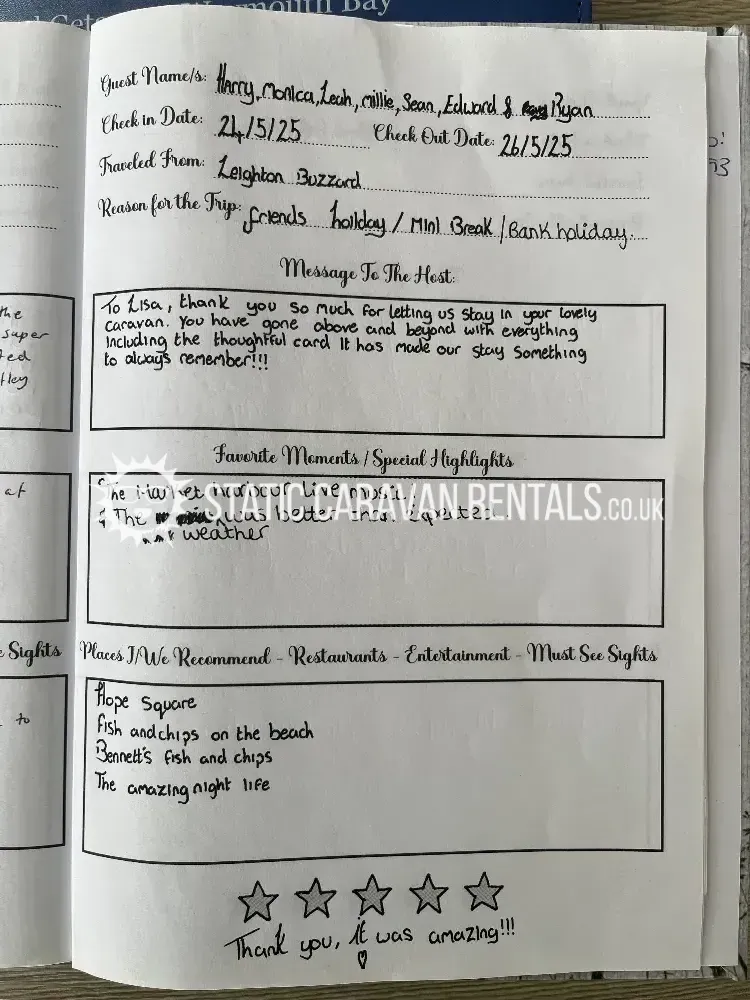 Weymouth Bay
Guest Name/s: Harry, Monica, Leah, millie, Sean, Edward & Ryan
Check in Date: 24/5/25 Check Out Date: 26/5/25
Traveled From: Leighton Buzzard
Reason for the Trip: friends holiday / Mini Break / Bank holiday.
Message To The Host:
To Lisa, thank you so much for letting us stay in your lovely
caravan. You have gone above and beyond with everything
including the thoughtful card It has made our stay something
to always remember!!!
Favorite Moments / Special Highlights
The Harbour live music!
The was better than expected.
weather
STATIC CARAVAN RENTALS.co.uk
Places I/We Recommend - Restaurants - Entertainment - Must See Sights
Hope Square
Fish and chips on the beach
Bennett's fish and chips
The amazing night life
Thank you, it was amazing!!!
the
super
at
Sights
to